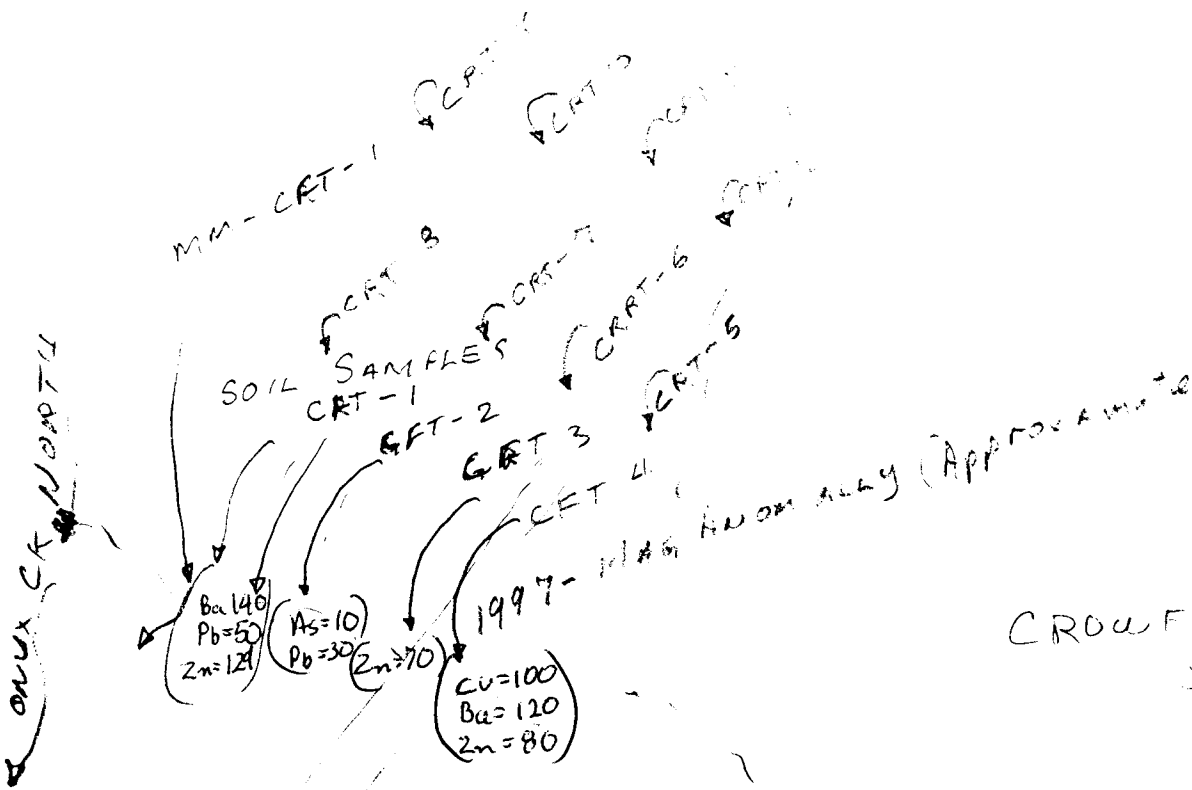 MM-CRT-1
CRT 8
CRT-7
CRRT-6
CRT-5
SOIL SAMPLES
CRT-1
GFT-2
GRT 3
CFT 4
1997-MAG ANOMALLY (Approxamate
ONUX CK NORTH
Ba 140
Pb=50
Zn=129
As=10
Pb=30
Zn=70
CU=100
Ba=120
Zn=80
CROWF